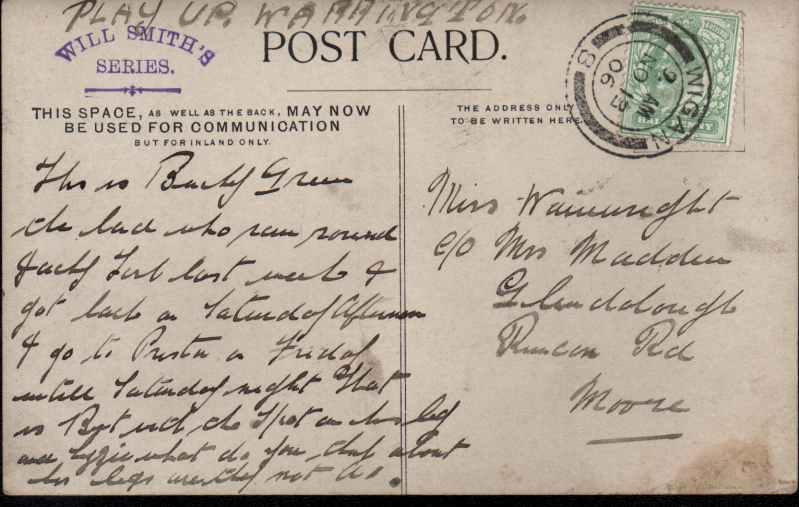 PLAY UP. WARRINGTON.
WILL SMITH'S
SERIES.
POST CARD.
THIS SPACE, AS WELL AS THE BACK, MAY NOW
BE USED FOR COMMUNICATION
BUT FOR INLAND ONLY.
THE ADDRESS ONLY
TO BE WRITTEN HERE.
WIGAN
NO 13
06
8
This is Green
the lad who ran round
last week &
got back on Saturday Afternoon
& go to on Friday
untill Saturday night That
is the Spot on his leg
and what do you think about
his legs are they not
Miss Wainwright
c/o Mrs Madden
Glendalough
Runcon Rd
Moore